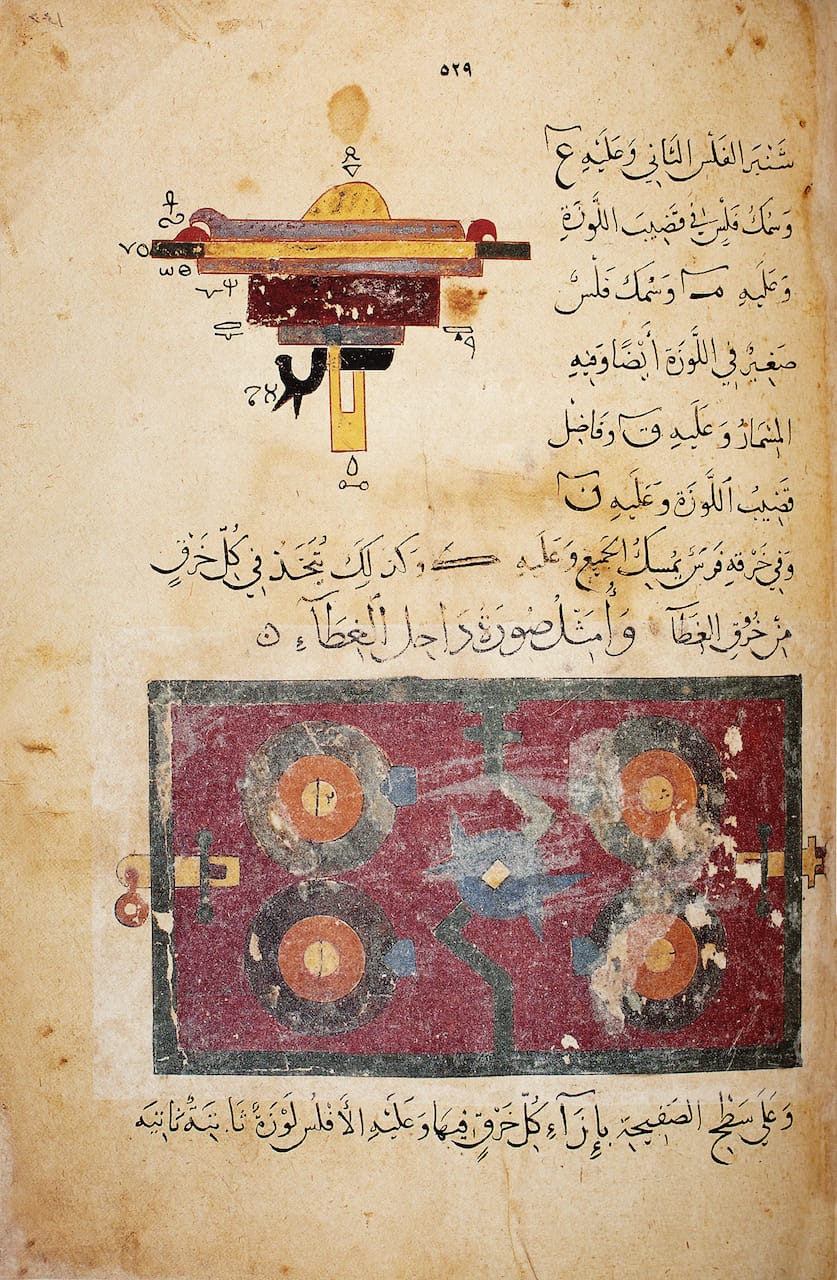 ٥٢٩
سَنْبَر الفَلْس الثَّانِي وَعَلَيْهِ ع
وَسُمْكُ فَلْسٍ فِي قَضِيبِ اللَّوْزَةِ
وَعَلَيْهِ مـ وَسُمْك فَلْسٍ
صَغِيْرٍ فِي اللَّوْزَة أَيْضًا وَفِيْهِ
المِسْمَارُ وَعَلَيهِ ق وَفَاضِل
قَضِيْبُ اللَّوْزَة وَعَلَيْهِ ن
وَفِي خَرْقِهِ فَرَسٌ يُمسِكُ الجَمِيعَ وَعَلَيْهِ ك وَكَذلِكَ يُتَّخَذ فِي كُلِّ خَرْقٍ
مِنْ خُرُوْقِ الغِطَآ وَأُمَثِّلُ صُورَةَ دَاخِلِ الغِطَآءِ ن
وَعَلَى سَطْحِ الصَّفِيحَةِ بِإِزَآءِ كُلِّ خَرْقٍ فِيهَا وَعَلَيْهِ الأَفْلُسُ لَوْزَةٌ ثَابِتَةٌ